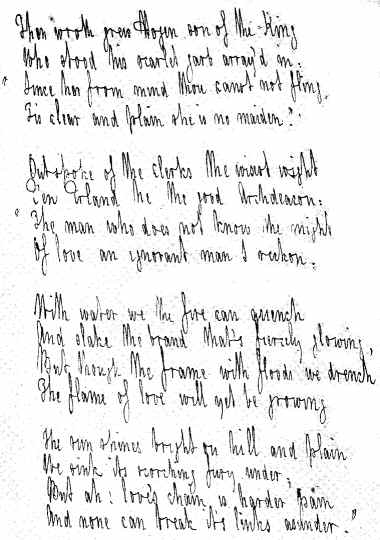 Then wroth grew Mogen son of the King
Who stood his scarlet garb array'd in:
"Since her from mind thou canst not fling,
Tis clear and plain she is no maiden."

Out spoke of the clerks the wisest wight
Een Erland he the good Archdeacon:
"The man who does not know the might
Of love an ignorant man I reckon.

With water we the fire can quench
And slake the brand that's fiercely glowing,
But though the frame with floods we drench
The flame of love will yet be growing

The sun shines bright on hill and plain
We sink its scorching fury under,
But ah! love's chain is harder pain
And none can break its links asunder."